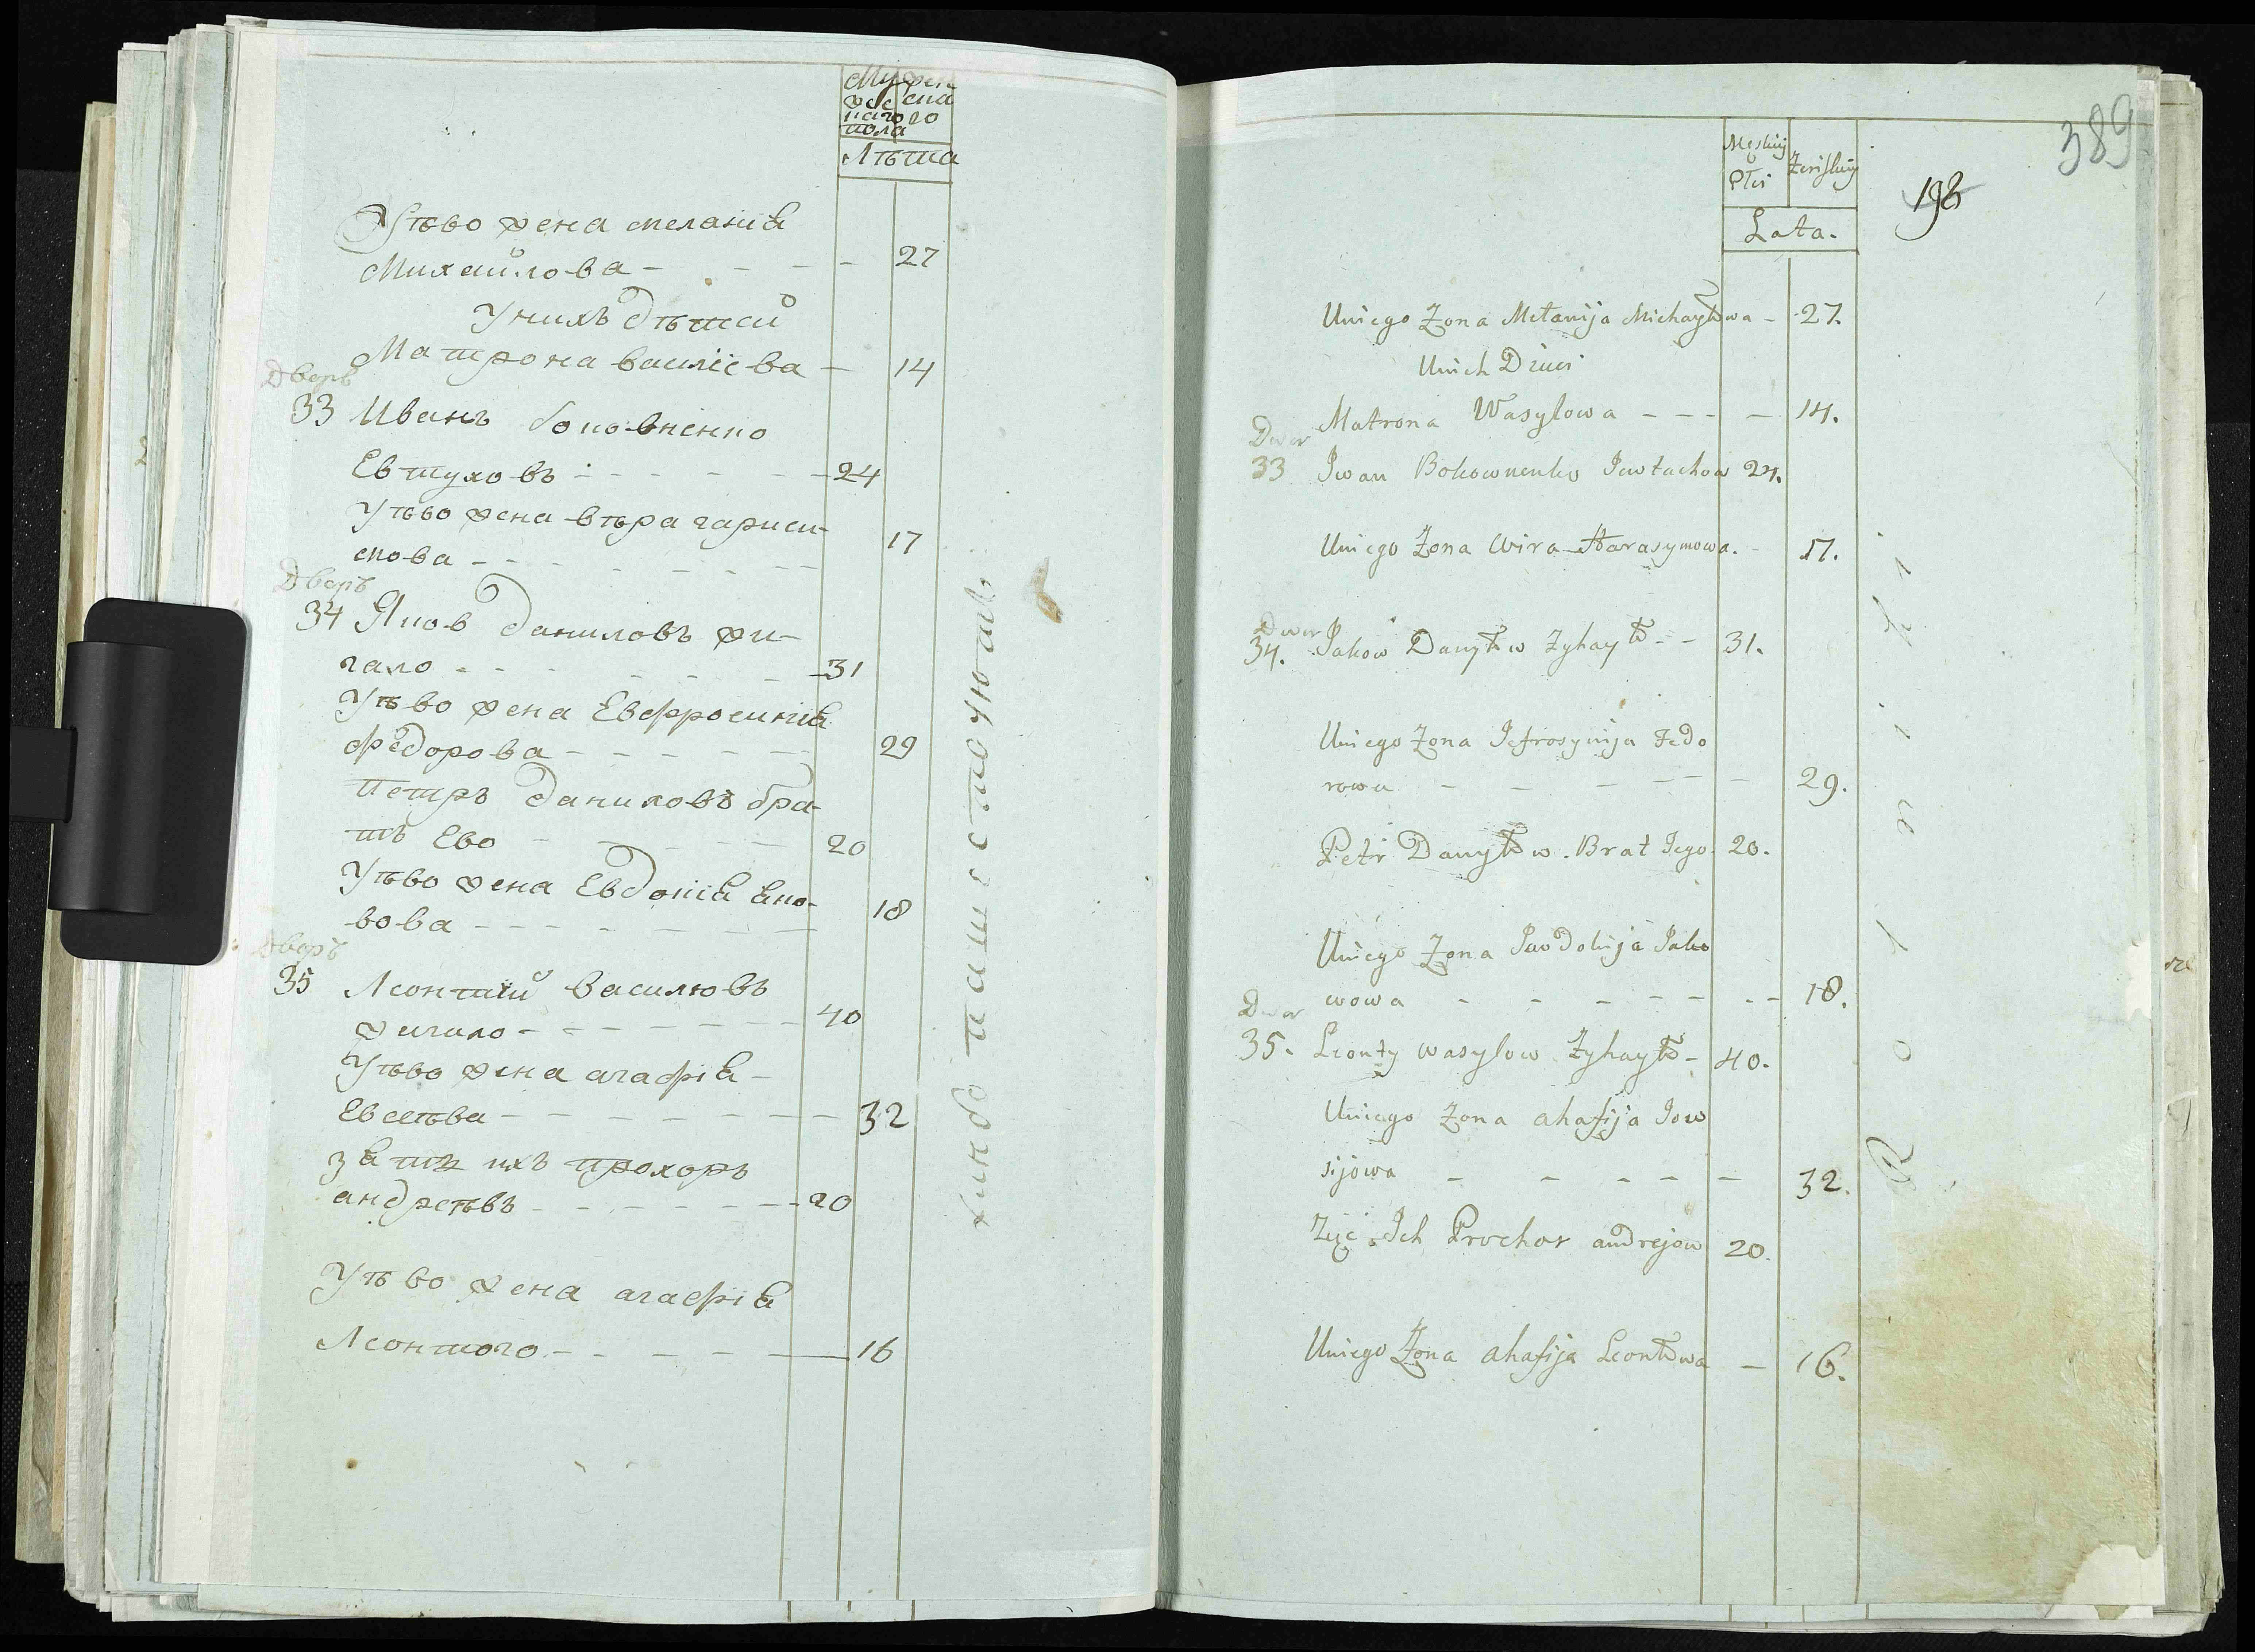 Муже
ска
го
пола
Жен
ска
го
Лѣта
Уѣво жена меланія
Михайлова - - - - 27
У нихъ дѣтей
Матрона василіева - 14
Дворъ
33 Иванъ боковненко
Евтуховъ - - - - 24
Уѣво жена вѣра гараси-
мова - - - - - - 17
Дворъ
34 Яков даниловъ жи-
гало - - - - - 31
Уѣво жена Евфросинія
федорова - - - - - 29
Петръ даниловъ бра-
тъ Ево - - - - - 20
Уѣво жена Евдокія яко-
вова - - - - - - - 18
Дворъ
35 Леонтій василювъ
жигало - - - - - - - 40
Уѣво жена агафія -
Евсеѣва - - - - - - - 32
зять ихъ прохоръ
андреѣвъ - - - - - - - 20
Уѣво жена агафія
Леонтово - - - - - 16
389
198
Męskiy
Płci
Zeńskiey
Lata.
Uniego Zona Mełanija Michayłowa - 27.
Unich Dzieci
Matrona Wasylowa - - - - 14.
Dwor
33 Iwan Bokownenko Iewtuchow 24.
Uniego Zona Wira Harasymowa. - 17.
Dwor
34. Jakow Danyłow Zyhayło - - 31.
Uniego Zona Jefrosynija Fedo
rowa - - - - - - 29.
Petr Danyłow. Brat Jego 20.
Uniego Zona Jawdokija Jako
wowa - - - - - - - 18.
Dwor
35. Leonty wasylow Zyhayło - 40.
Uniego Zona ahafija Jow
sijowa - - - - - - 32.
Zięć Ich Prochor andrejow 20.
Uniego Zona ahafija Leontowa - 16.